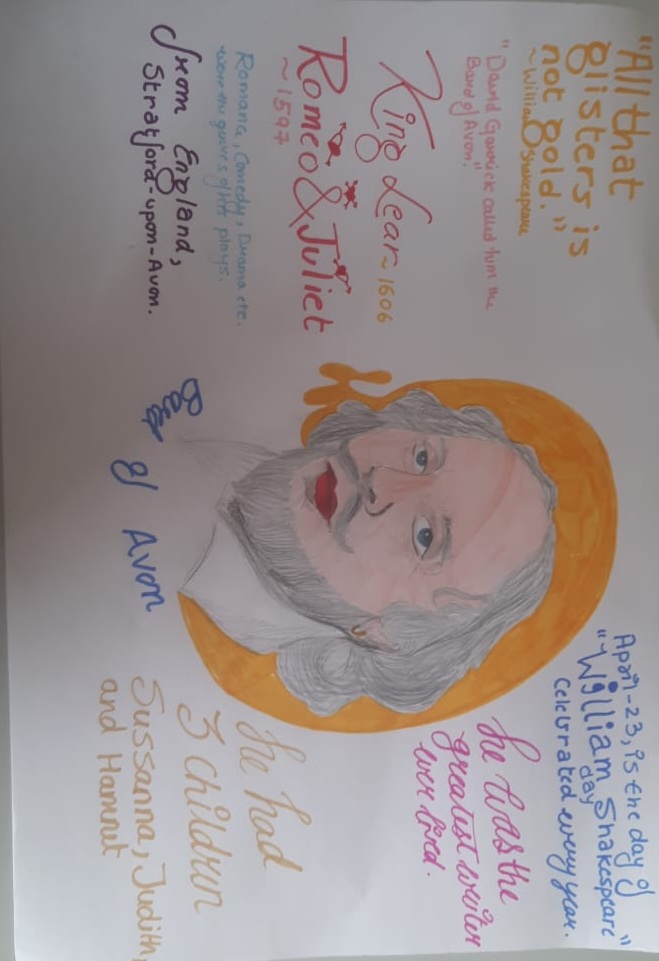 "All that
glisters is
not gold."
~William Shakespeare
"David Garrick called him the
Bard of Avon."
King Lear ~ 1606
Romeo & Juliet
~ 1597
Romance, Comedy, Drama etc.
were the genres of his plays.
from England,
Stratford-upon-Avon.
Bard of Avon
April-23, is the day of
"William Shakespeare"
day
celebrated every year.
he was the
greatest writer
ever lived.
he had
3 children
Sussanna, Judith,
and Hamnet